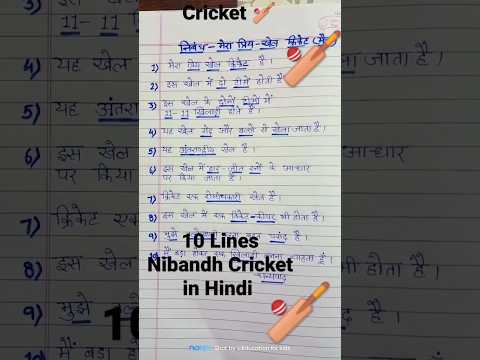 Cricket
निबंध - मेरा प्रिय खेल क्रिकेट
1) मेरा प्रिय खेल क्रिकेट है।
2) इस खेल में दो टीमें होती हैं
3) इस खेल के दोनों टीमों में
11-11 खिलाड़ी होते हैं।
4) यह खेल गेंद और बल्ले से खेला जाता है।
5) यह अंतराष्ट्रीय खेल है।
6) इस खेल में हार-जीत रनों के आधार
पर किया जाता है।
7) क्रिकेट एक रोमांचकारी खेल है।
8) इस खेल में एक विकेट-कीपर भी होता है।
9) मुझे पसंद है।
10) मैं बड़ा होकर एक खिलाड़ी बनना चाहता हूँ।
धन्यवाद
10 Lines
Nibandh Cricket
in Hindi
11-11
4) यह खेल
5) यह अंतरा
6) इस खे
पर किया
7) क्रिकेट एक
8) इस खेल
9) मुझे
10) मैं बड़ा हो
जाता है।
आधार
होता है।
है।
10
Shot by
Education for kids